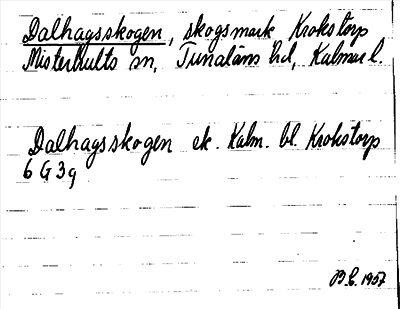 Dalhagsskogen, skogsmark Krokstorp
Misterhults sn, Tunaläns hd, Kalmar l.
Dalhagsskogen ek. Kalm. bl. Krokstorp
6 G 3 g
B.E. 1957